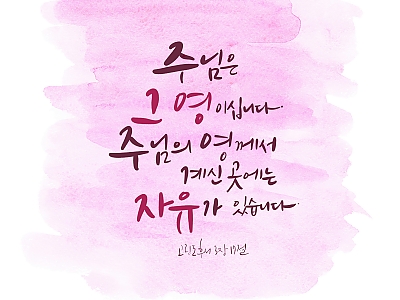 주님은
그 영이십니다.
주님의 영께서
계신 곳에는
자유가 있습니다.
고린도후서 3장 17절